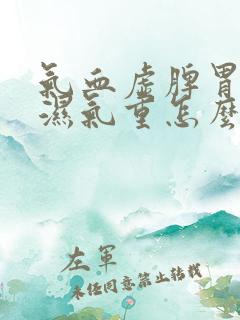 氣血虛脾胃
濕氣重怎麼
左軍
未經同意禁止轉載